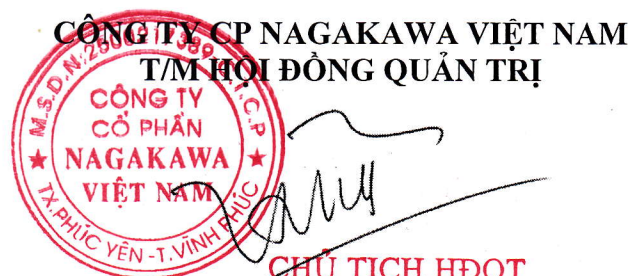 CÔNG TY CP NAGAKAWA VIỆT NAM
T/M HỘI ĐỒNG QUẢN TRỊ
CÔNG TY
CỔ PHẦN
NAGAKAWA
VIỆT NAM
TX.PHÚC YÊN -T.VĨNH PHÚC
CHỦ TỊCH HĐQT